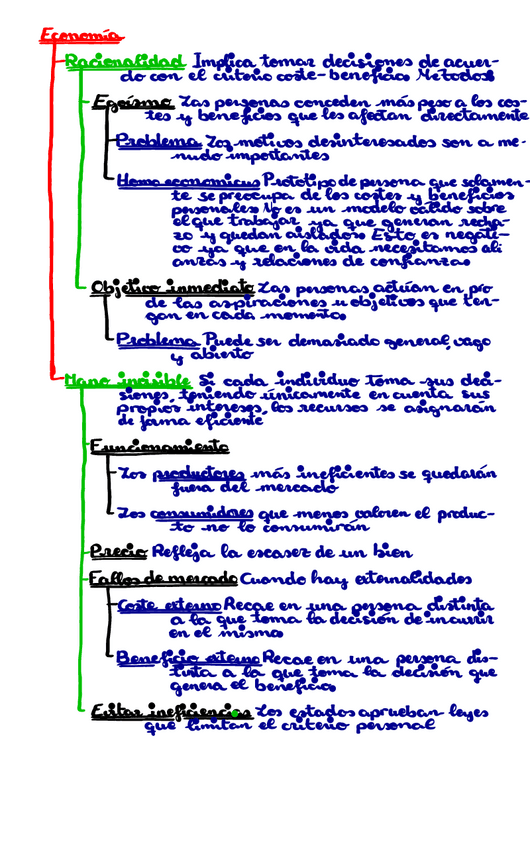 Economía
Racionalidad Implica tomar decisiones de acuer-
do con el criterio coste-beneficio Métodos
Egoísmo Las personas conceden más peso a los cos-
tes y beneficios que les afectan directamente
Problema Los motivos desinteresados son a me-
nudo importantes
Homo economicus Prototipo de persona que solamen-
te se preocupa de los costes y beneficios
personales No es un modelo válido sobre
el que trabajar, ya que generan recha-
zo y quedan aislados Esto es negati-
vo ya que en la vida necesitamos ali
anzas y relaciones de confianza
Objetivo inmediato Las personas actúan en pro
de las aspiraciones u objetivos que ten-
gan en cada momento.
Problema Puede ser demasiado general, vago
y abierto
Mano invisible Si cada individuo toma sus deci-
siones, teniendo únicamente en cuenta sus
propios intereses, los recursos se asignarán
de forma eficiente
Funcionamiento
Los productores más ineficientes se quedarán
fuera del mercado
Los consumidores que menos valoren el produc-
to no lo consumirán
Precio Refleja la escasez de un bien
Fallos de mercado Cuando hay externalidades
Coste externo Recae en una persona distinta
a la que toma la decisión de incurrir
en el mismo
Beneficio externo Recae en una persona dis-
tinta a la que toma la decisión que
genera el beneficio
Evitar ineficiencias Los estados aprueban leyes
que limitan el criterio personal